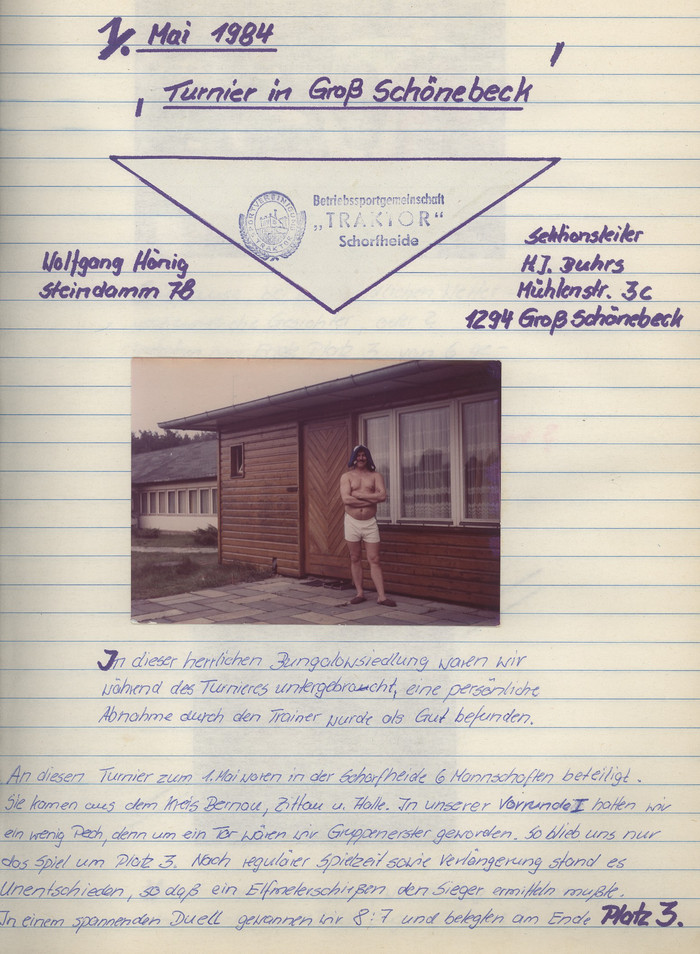 1. Mai 1984
Turnier in Groß Schönebeck
SPORTVEREINIGUNG
TRAKTOR
Betriebssportgemeinschaft
„TRAKTOR"
Schorfheide
Wolfgang Hönig
Steindamm 7B
Sektionsleiter
H.J. Buhrs
Mühlenstr. 3c
1294 Groß Schönebeck
In dieser herrlichen Bungalowsiedlung waren wir
während des Turnieres untergebraucht, eine persönliche
Abnahme durch den Trainer wurde als Gut befunden.
An diesen Turnier zum 1. Mai waren in der Schorfheide 6 Mannschaften beteiligt.
Sie kamen aus dem Kreis Bernau, Zittau u. Halle. In unserer Vorrunde I hatten wir
ein wenig Pech, denn um ein Tor wären wir Gruppenerster geworden. So blieb uns nur
das Spiel um Platz 3. Nach regulärer Spielzeit sowie Verlängerung stand es
Unentschieden, so daß ein Elfmeterschißen den Sieger ermitteln mußte.
In einem spannenden Duell gewannen wir 8:7 und belegten am Ende Platz 3.